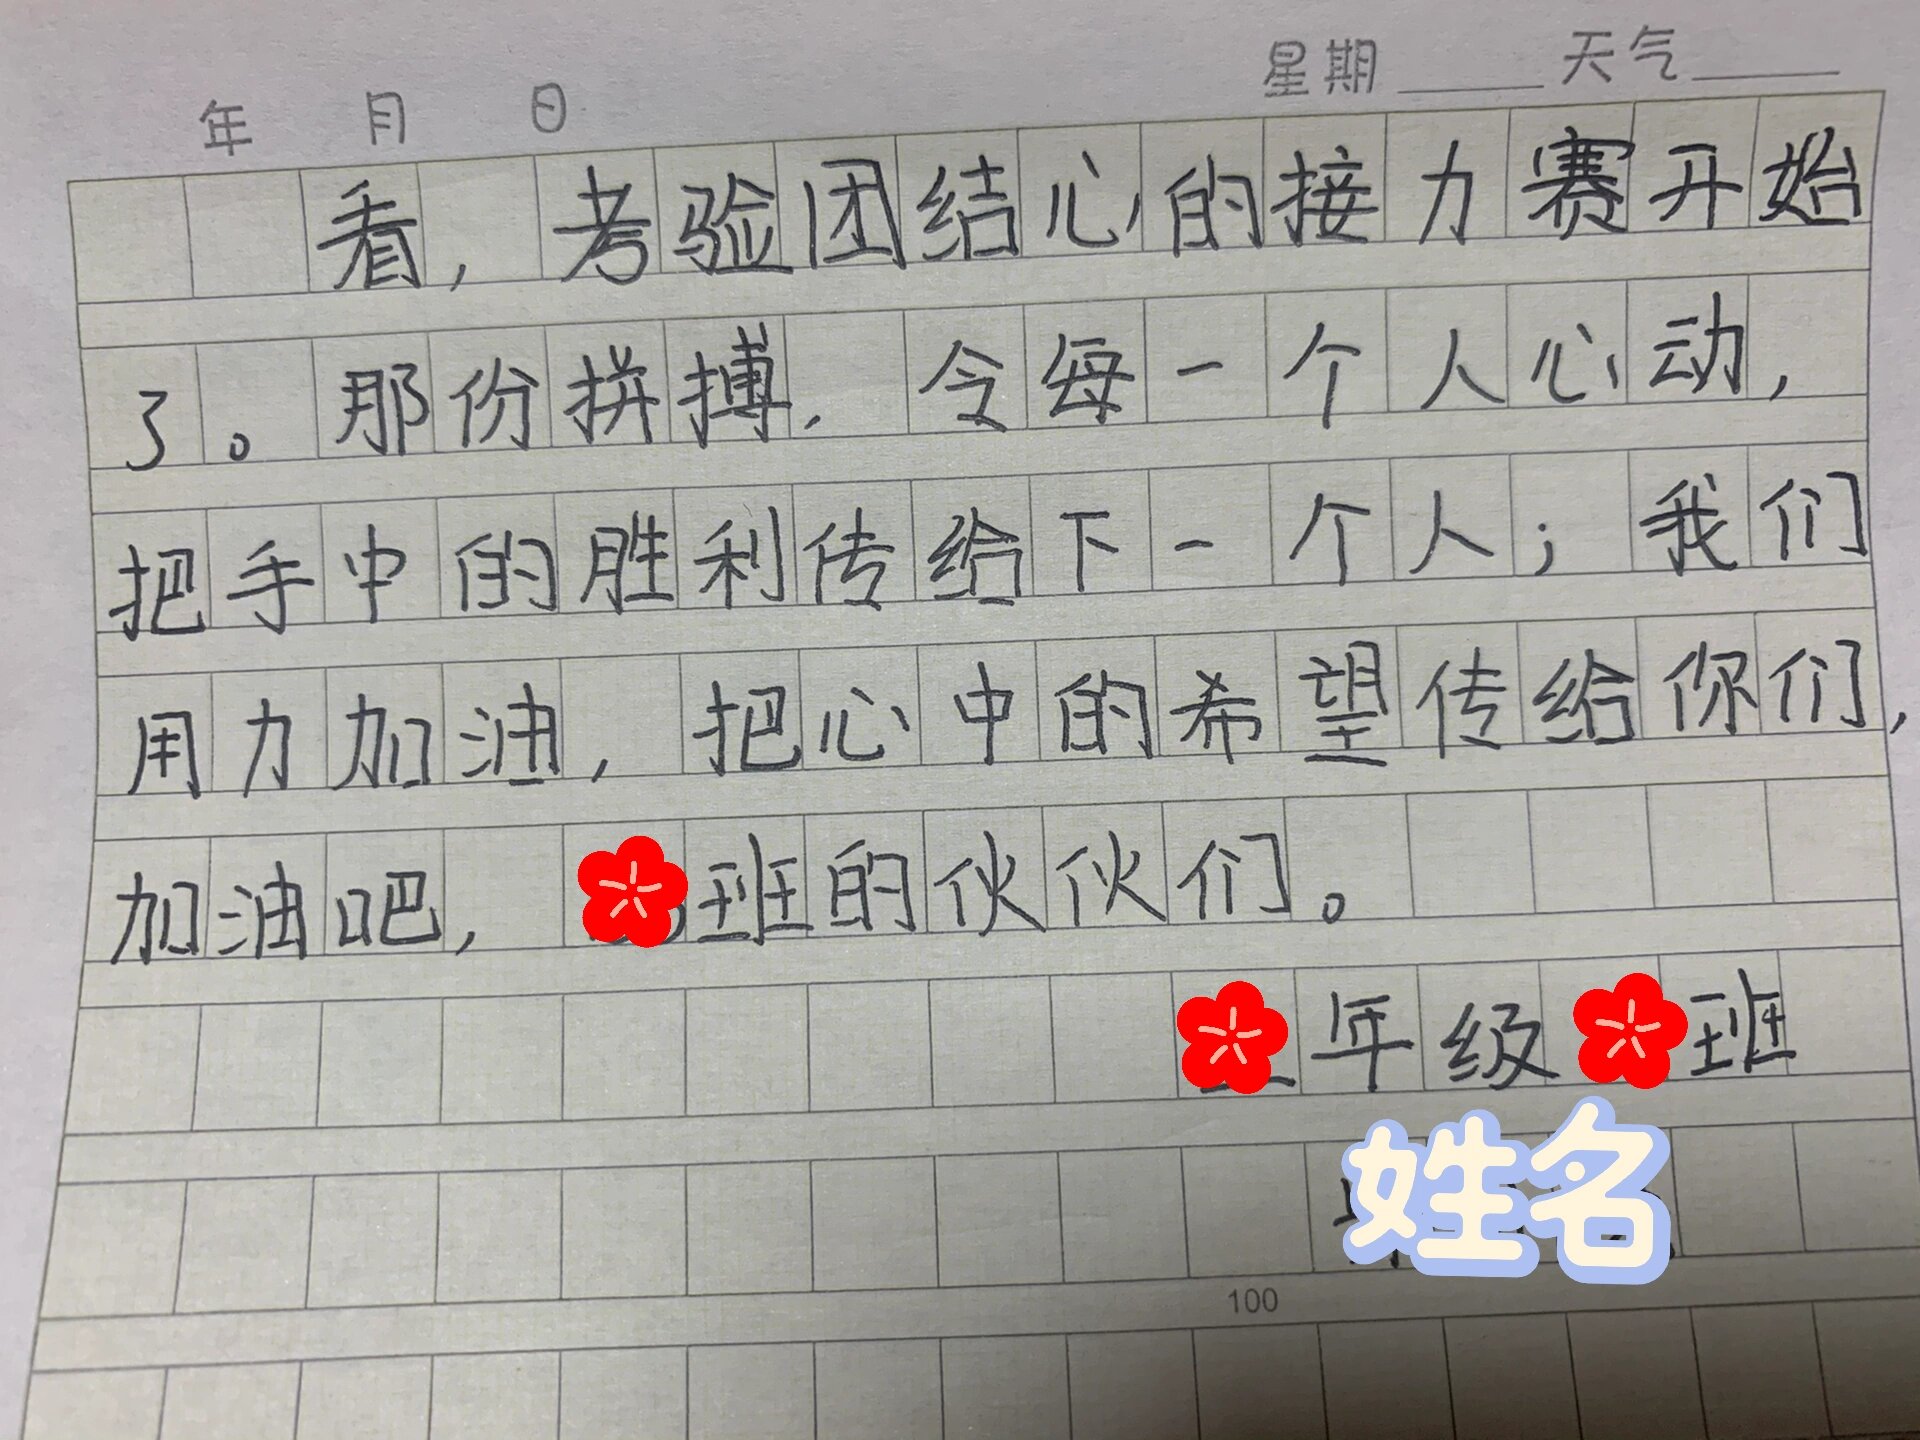 年 月 日 星期 天气
看，考验团结心的接力赛开始
了。那份拼搏，令每一个人心动，
把手中的胜利传给下一个人；我们
用力加油，把心中的希望传给你们，
加油吧，班的伙伙们。
年级班
姓名
100